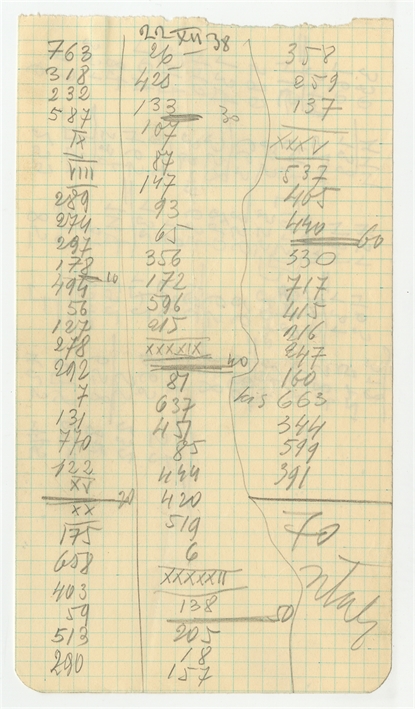 22 XII 38
763
318
232
587
IX
VIII
289
274
297
178
494 10
56
127
278
292
7
131
770
122
XV
20
XX
175
658
403
59
513
290
26
425
133 30
107
87
147
93
65
356
172
596
215
XXXXIX
40
81
637
457
85
444
420
519
6
XXXXXII
138
50
205
18
157
358
259
137
XXXV
537
465
440
60
530
717
415
216
247
160
663
344
599
391
70